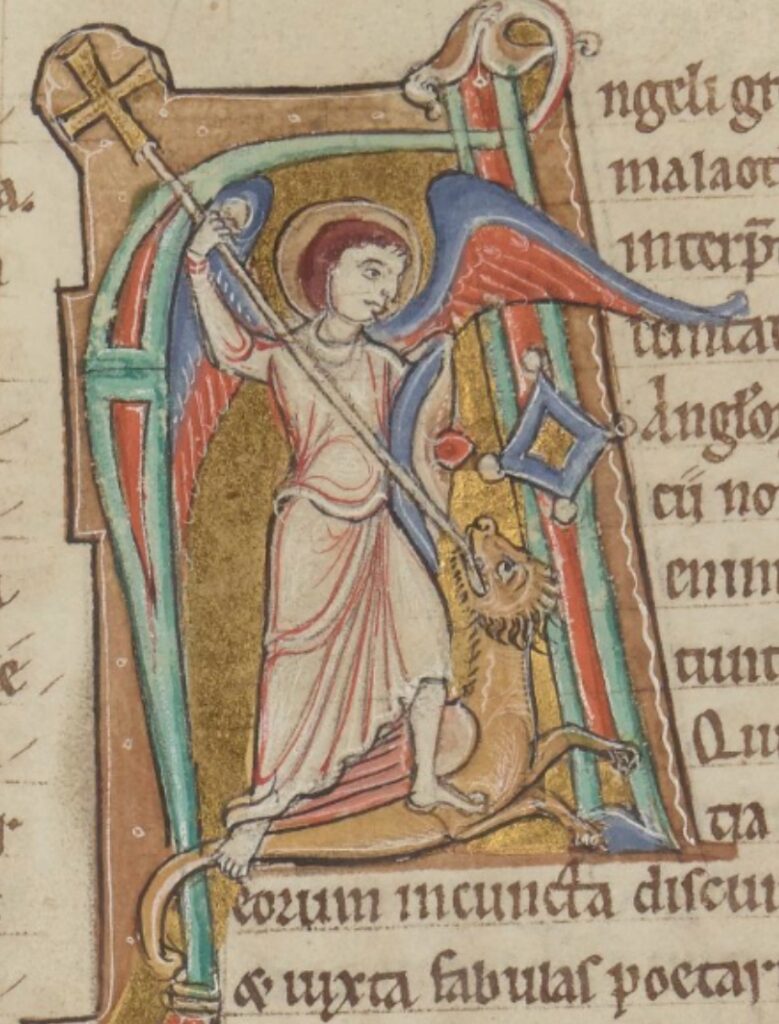 Angeli gr
malaot
interp̄
nuntia
Anglo
cii no
enim
tiunt
Qui
tia
eorum incuncta discur
& iuxta fabulas poetar